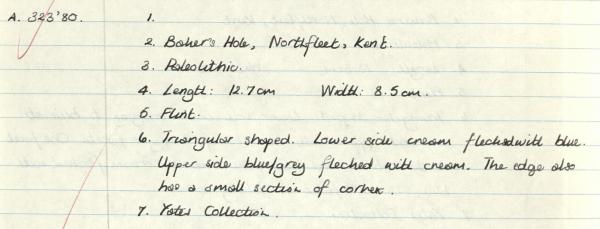 A. 323'80. 1.
2. Baker's Hole, Northfleet, Kent.
3. Paleolithic.
4. Length: 12.7cm Width: 8.5cm.
5. Flint.
6. Triangular shaped. Lower side cream flecked with blue.
Upper side blue/grey flecked with cream. The edge also
has a small section of cortex.
7. Yates Collection.